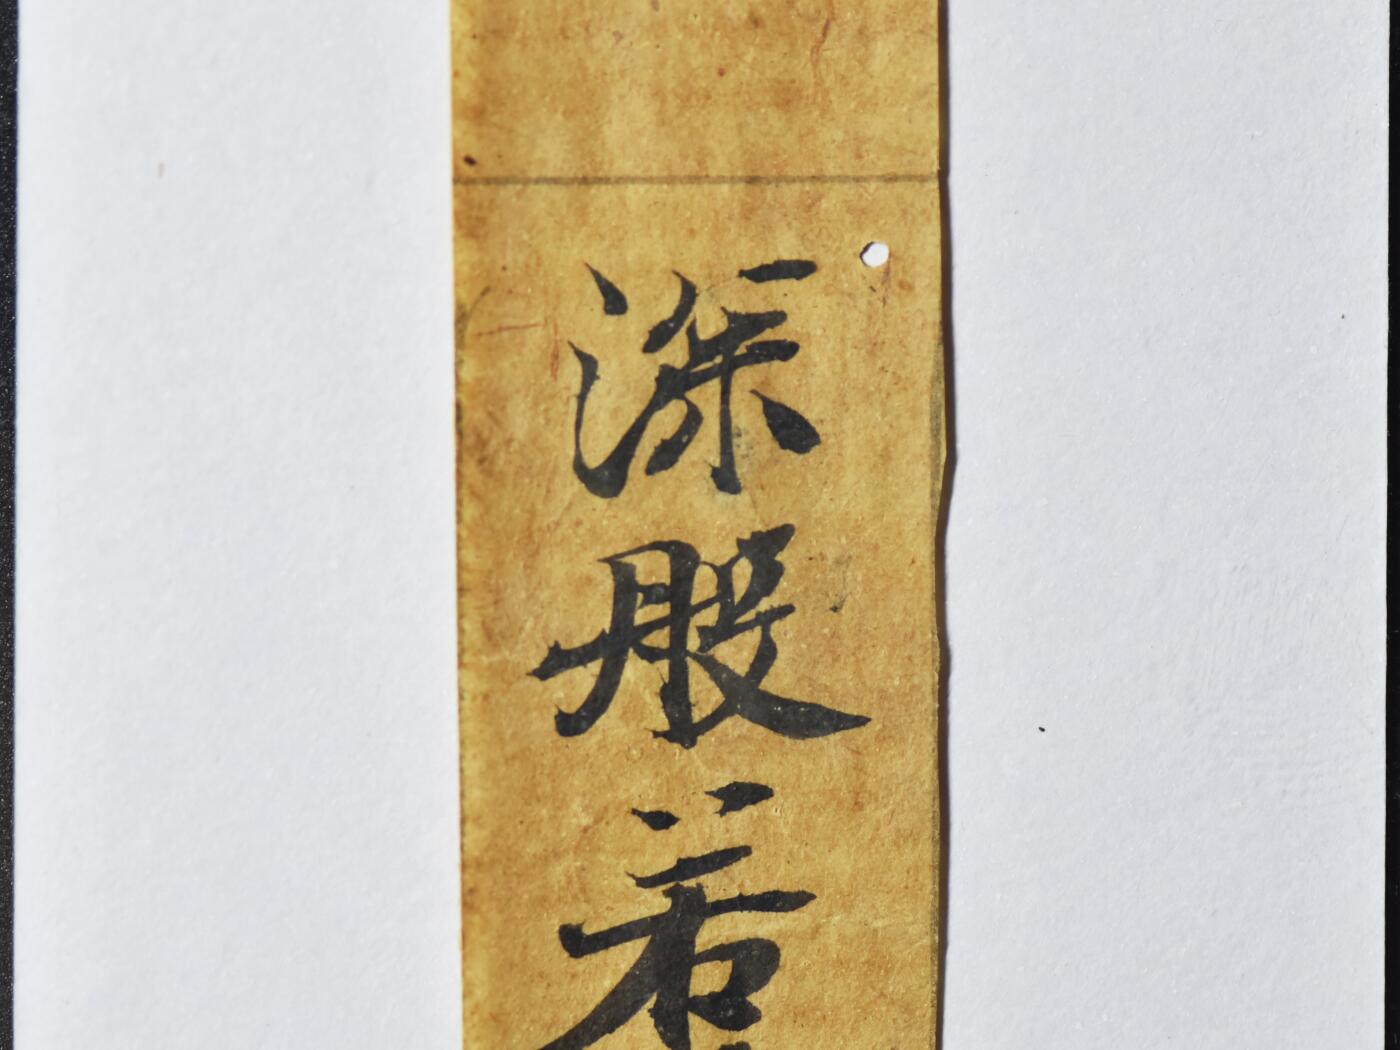 深般若